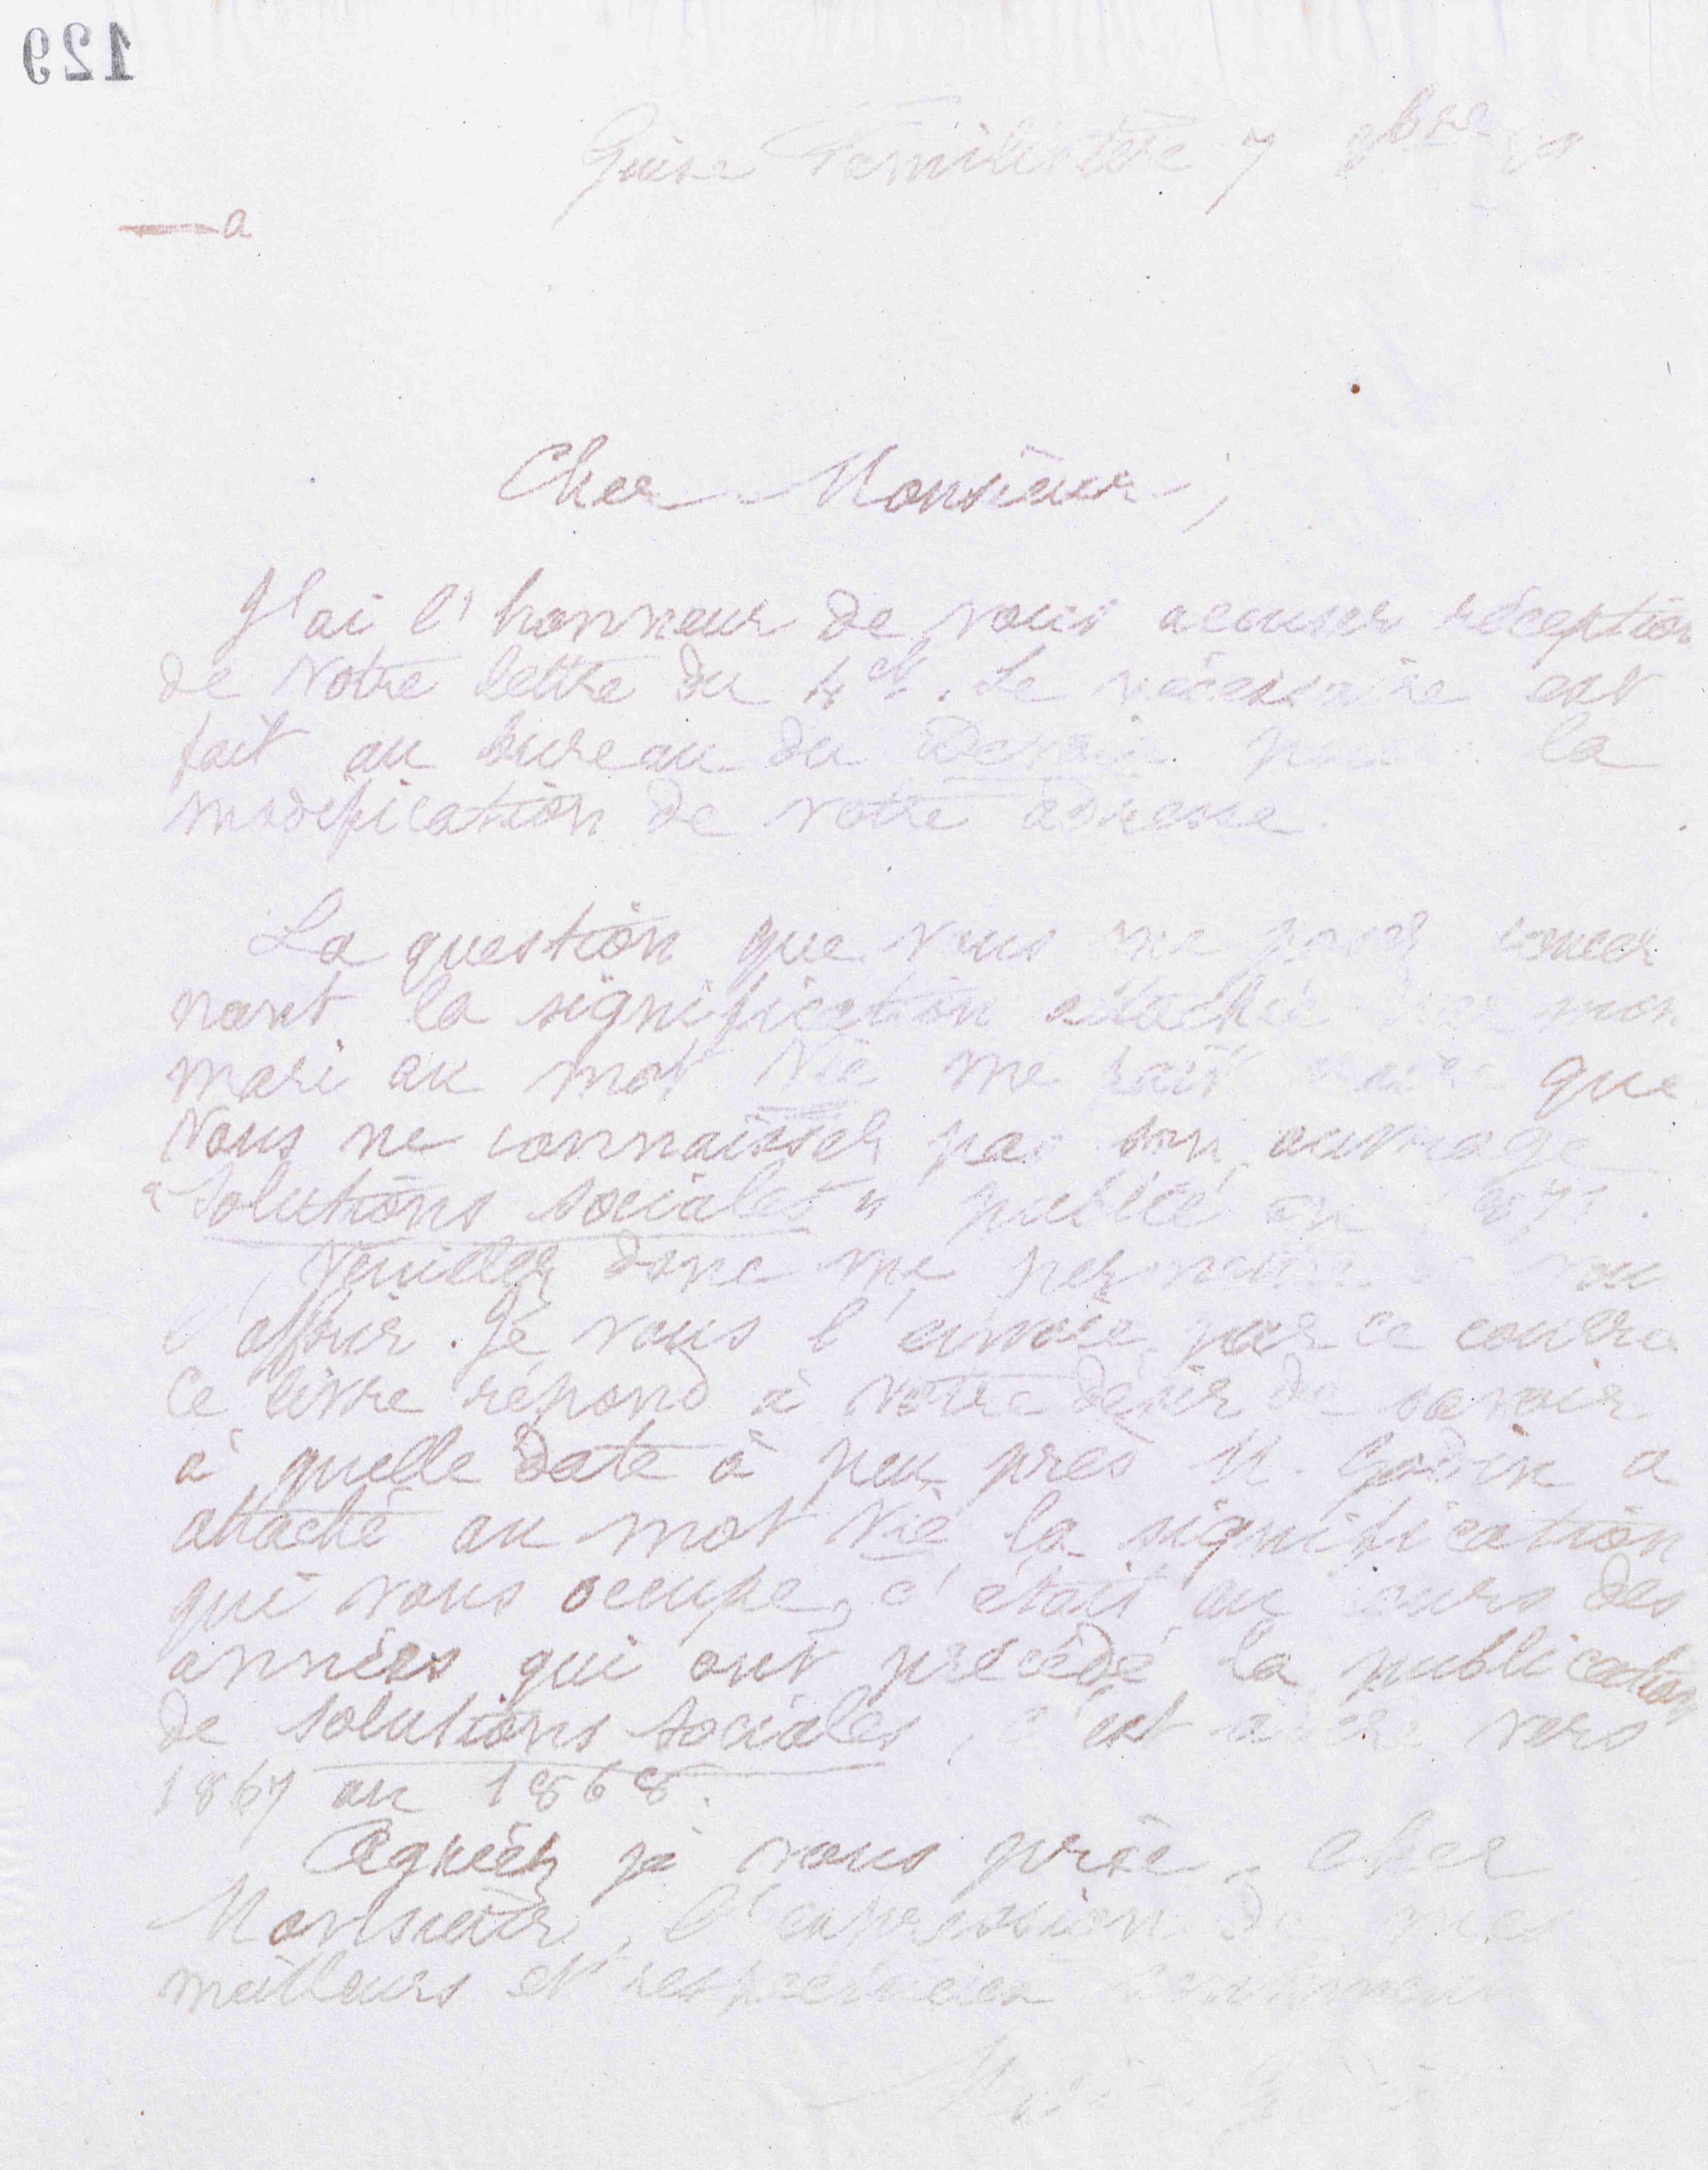 129
Guise Familistère 7 9bre 89
a
Cher Monsieur,
J'ai l'honneur de vous accuser réception
de votre lettre du 4 ct. Le nécessaire est
fait au bureau du Devoir pour la
modification de votre adresse.
La question que vous me posez concer
nant la signification attachée par mon
mari au mot Vie me fait que
vous ne connaissez pas son ouvrage
"Solutions sociales" publié en 1871.
Veuillez donc me permettre de vous
l'offrir. Je vous l'envoie par ce courrier
Ce livre répond à votre désir de savoir
à quelle date à peu près M. Godin a
attaché au mot vie la signification
qui vous occupe, c'était au cours des
années qui ont précédé la publication
de Solutions sociales, c'est à dire vers
1867 ou 1868.
Agréez je vous prie, cher
Monsieur, l'expression de mes
meilleurs et respectueux sentiments
Marie Godin